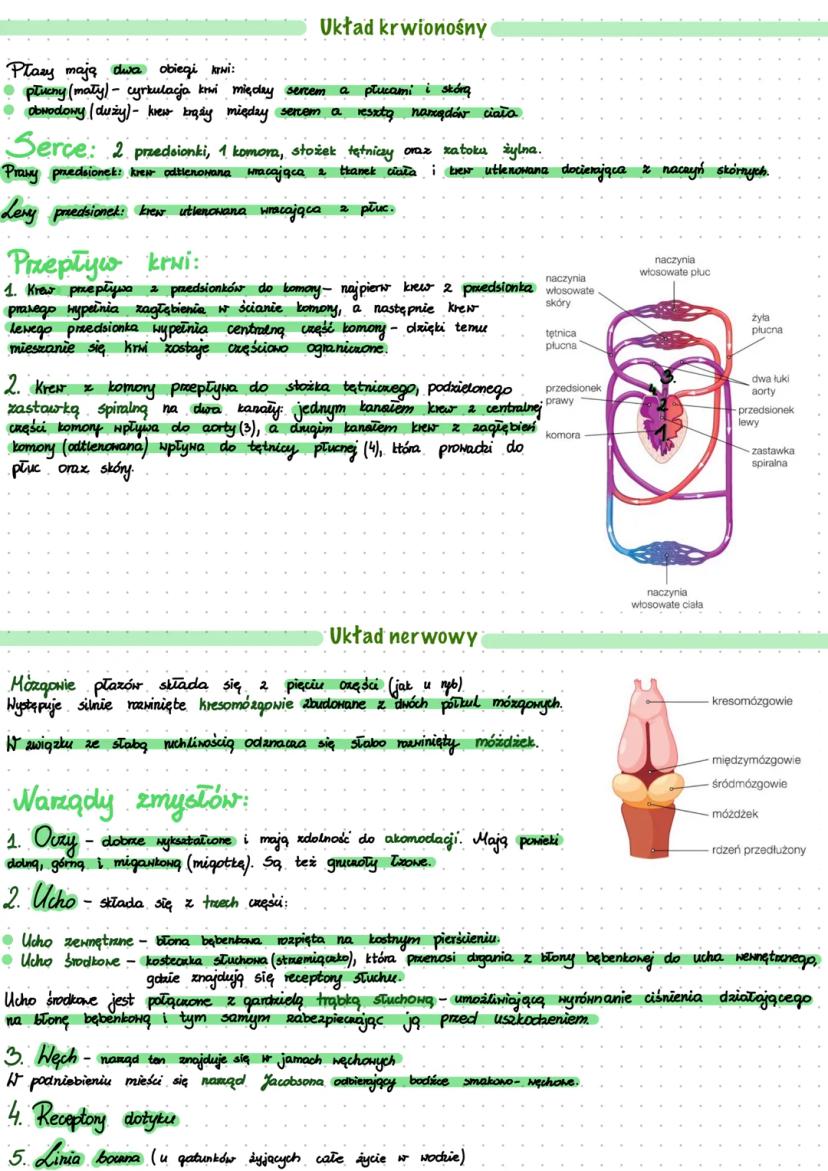 Układ krwionośny
Płazy mają dwa obiegi krwi:
płucny (mały) - cyrkulacja krwi między sercem a płucami i skórą
obwodowy (duży) - krew krąży między sercem a resztą narządów ciała
Serce: 2 przedsionki, 1 komora, stożek tętniczy oraz zatoka żylna.
Prawy przedsionek: krew odtlenowana wracająca z tkanek ciała i krew utlenowana docierająca z naczyń skórnych.
Lewy przedsionek: krew utlenowana wracająca z płuc.
Przepływ krwi:
1. Krew przepływa z przedsionków do komory - najpierw krew z przedsionka
prawego wypełnia zagłębienia w ścianie komory, a następnie krew
lewego przedsionka wypełnia centralną część komory - dzięki temu
mieszanie się krwi zostaje częściowo ograniczone.
2. Krew z komory przepływa do stożka tętniczego, podzielonego
zastawką spiralną na dwa kanały: jednym kanałem krew z centralnej
części komory wpływa do aorty (3), a drugim kanałem krew z zagłębień
komory (odtlenowana) wpływa do tętnicy płucnej (4), która prowadzi do
płuc oraz skóry.
naczynia
włosowate płuc
naczynia
włosowate
skóry
żyła
płucna
tętnica
płucna
dwa łuki
aorty
przedsionek
prawy
przedsionek
lewy
komora
zastawka
spiralna
3.
4.
2.
1.
naczynia
włosowate ciała
Układ nerwowy
Mózgowie płazów składa się z pięciu części (jak u ryb)
Występuje silnie rozwinięte kresomózgowie zbudowane z dwóch półkul mózgowych.
W związku ze słabą ruchliwością odznacza się słabo rozwinięty móżdżek.
kresomózgowie
międzymózgowie
śródmózgowie
móżdżek
rdzeń przedłużony
Narządy zmysłów:
1. Oczy - dobrze wykształcone i mają zdolność do akomodacji. Mają powieki
dolną, górną i migawkową (migotkę). Są też gruczoły łzowe.
2. Ucho - składa się z trzech części:
Ucho zewnętrzne - błona bębenkowa rozpięta na kostnym pierścieniu.
Ucho środkowe - kosteczka słuchowa (strzemiączko), która przenosi drgania z błony bębenkowej do ucha wewnętrznego,
gdzie znajdują się receptory słuchu.
Ucho środkowe jest połączone z gardzielą trąbką słuchową - umożliwiającą wyrównanie ciśnienia działającego
na błonę bębenkową i tym samym zabezpieczając ją przed uszkodzeniem.
3. Węch - narząd ten znajduje się w jamach węchowych
W podniebieniu mieści się narząd Jacobsona odbierający bodźce smakowo-węchowe.
4. Receptory dotyku
5. Linia boczna (u gatunków żyjących całe życie w wodzie)